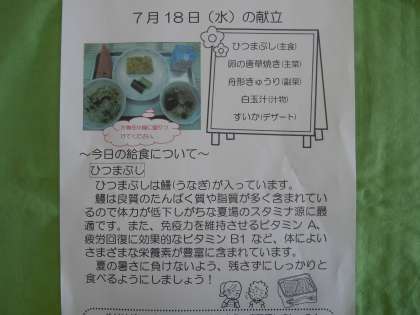 7月18日（水）の献立
ひつまぶし(主食)
卵の唐草焼き(主菜)
舟形きゅうり(副菜)
白玉汁(汁物)
すいか(デザート)
～今日の給食について～
ひつまぶし
ひつまぶしは鰻(うなぎ)が入っています。
鰻は良質のたんぱく質や脂質が多く含まれている
ので体力が低下しがちな夏場のスタミナ源に最
適です。また、免疫力を維持させるビタミンA、
疲労回復に効果的なビタミンB1など、体によい
さまざまな栄養素が豊富に含まれています。
夏の暑さに負けないよう、残さずにしっかりと
食べるようにしましょう！